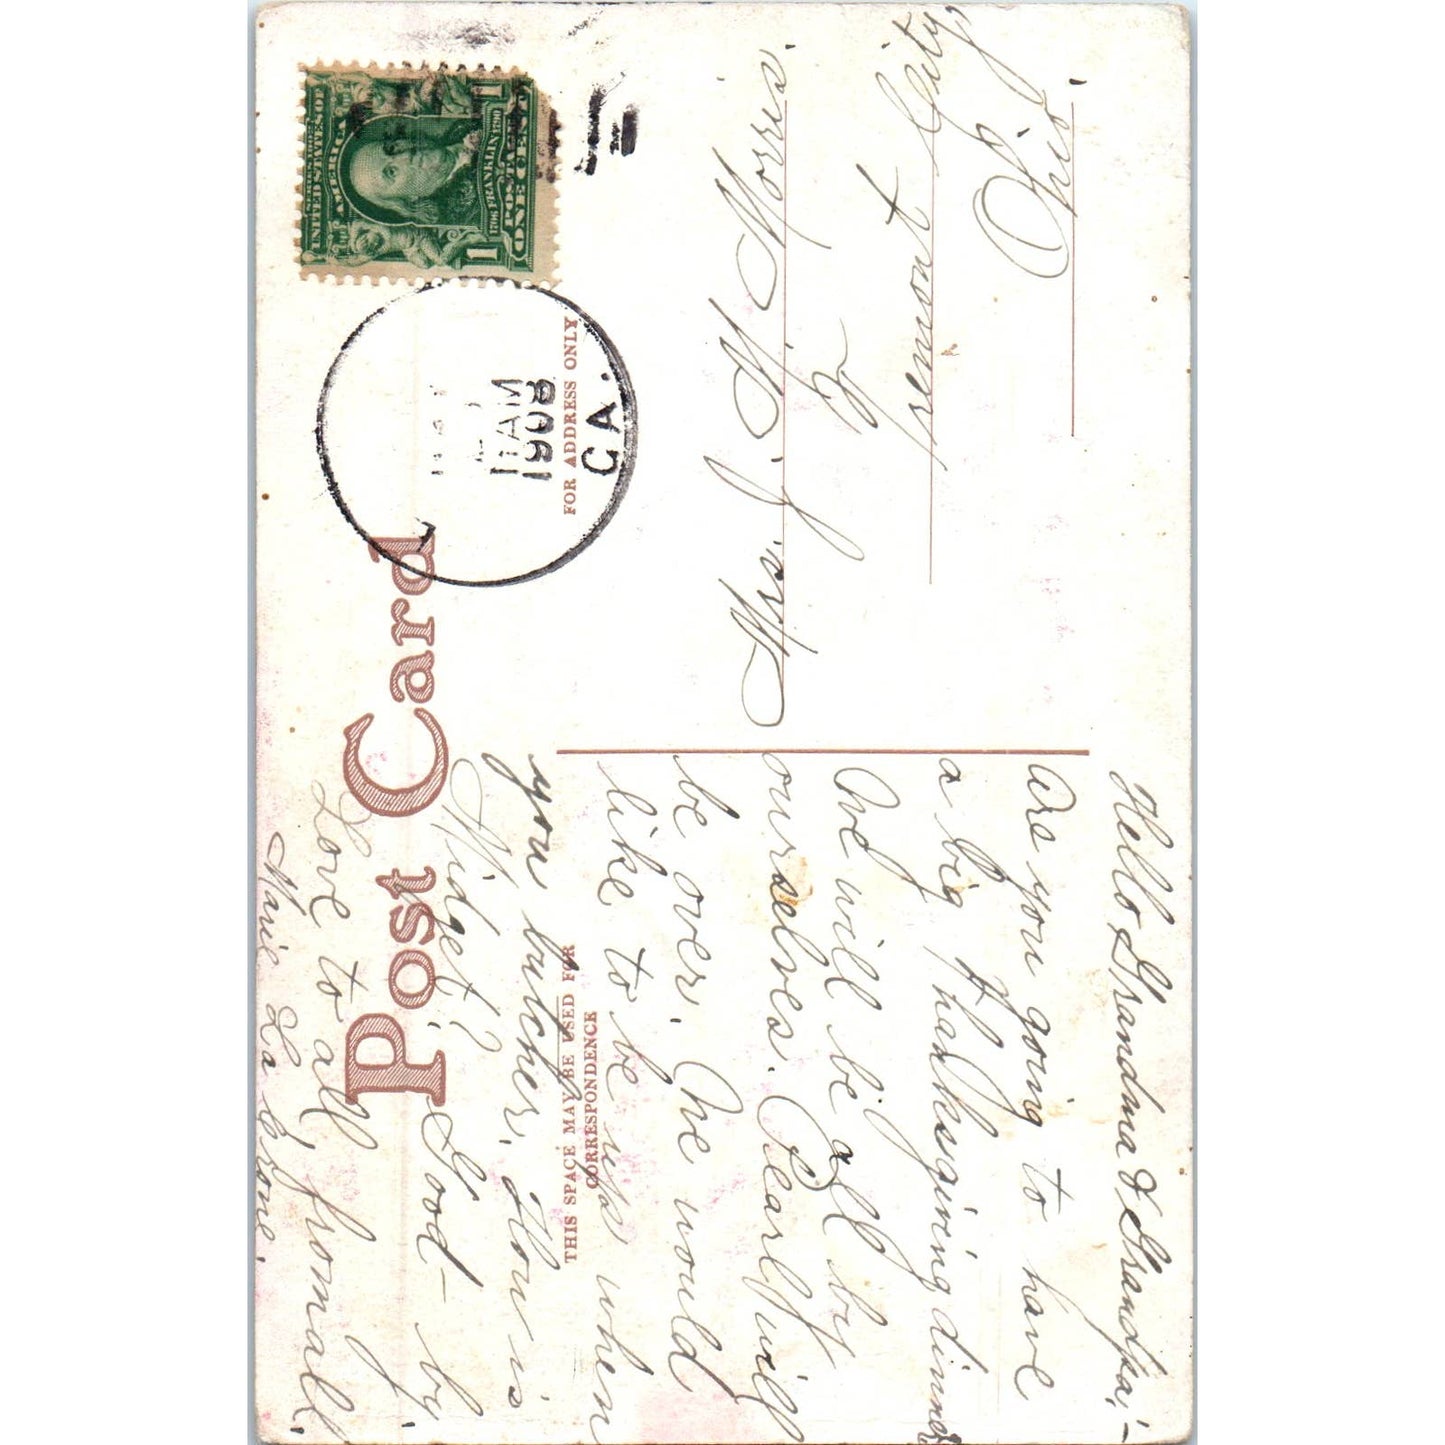 Post Card
THIS SPACE MAY BE USED FOR
CORRESPONDENCE
FOR ADDRESS ONLY
UNITED STATES OF
AMERICA
1706 FRANKLIN 1790
POSTAGE
1 ONE CENT 1
AM
1908
CA.
Mrs. J. M. Morris.
Hello Grandma & Grandpa:-
Are you going to have
a big Thanksgiving dinner
We will be all by
ourselves. Pearl will
be over. We would
like to be up when
you butcher. How is
Midget? Good-by
Love to all, from all.
Marie La Crone.